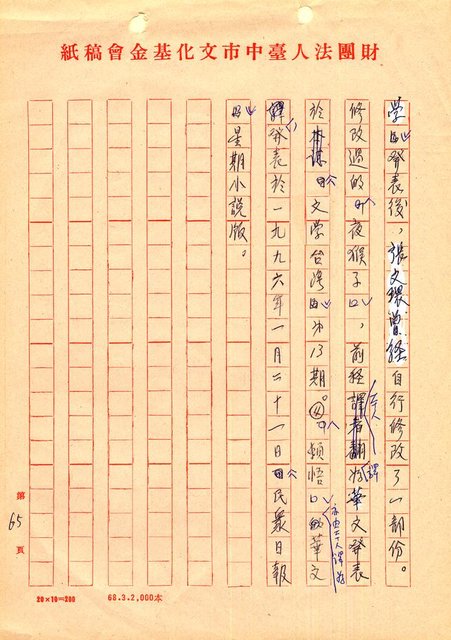 財團法人臺中市文化基金會稿紙
學』發表後，張文環曾經自行修改了一部份。
修改過的「夜猴子」，前經本人譯為華文發表
於「文學台灣」第13期。④「頓悟」華文
亦由本人譯為
發表於一九九六年一月二十一日「民眾日報
』星期小說版。
第65頁
20×10=200
68.3.2,000本